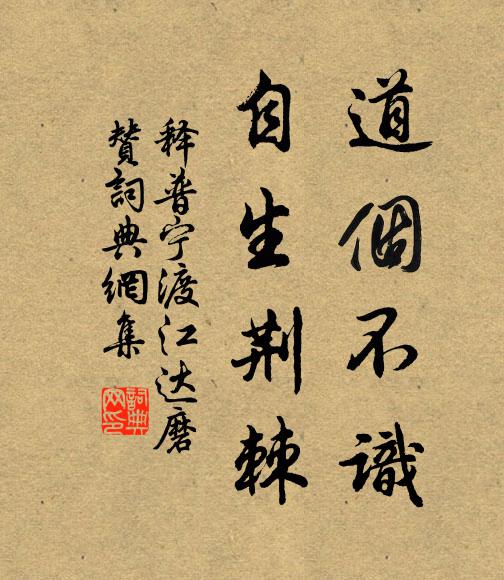 道個不識
自生荆棘
释普宁渡江达磨
赞詞典網集
詞典
网印